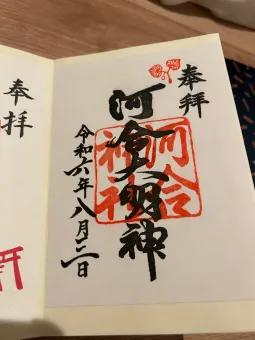 奉拝
河合大明神
河合神社
令和六年八月二日
奉拝